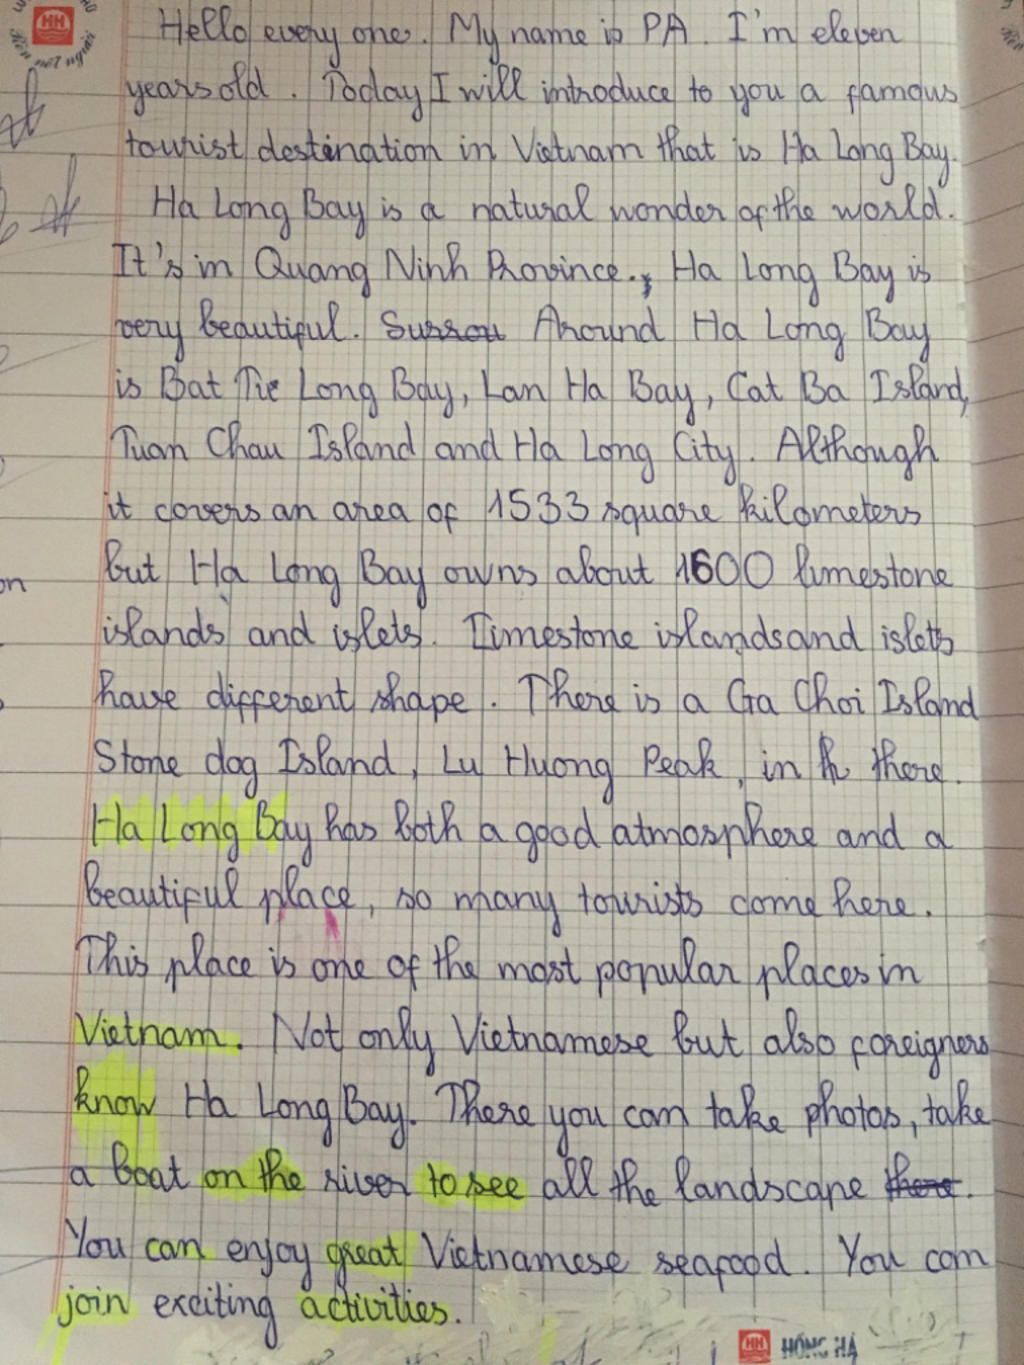 Hello every one. My name is PA. I'm eleven
years old. Today I will introduce to you a famous
tourist destination in Vietnam that is Ha Long Bay.
Ha Long Bay is a natural wonder of the world.
It's in Quang Ninh Province., Ha Long Bay is
very beautiful. Surrou Around Ha Long Bay
is Bat Tie Long Bay, Lan Ha Bay, Cat Ba Island,
Tuan Chau Island and Ha Long City. Although
it covers an area of 1533 square kilometers
but Ha Long Bay owns about 1600 limestone
on
islands and islets. Limestone islands and islets
have different shape. There is a Ga Choi Island
Stone dog Island, Lu Huong Peak, in th there.
Ha Long Bay has both a good atmosphere and a
beautiful place, so many tourists come here.
This place is one of the most popular places in
Vietnam. Not only Vietnamese but also foreigners
know Ha Long Bay. There you can take photos, take
a boat on the river to see all the landscape there.
You can enjoy great Vietnamese seafood. You can
join exciting activities.
HH HỒNG HÀ
HH
nét người